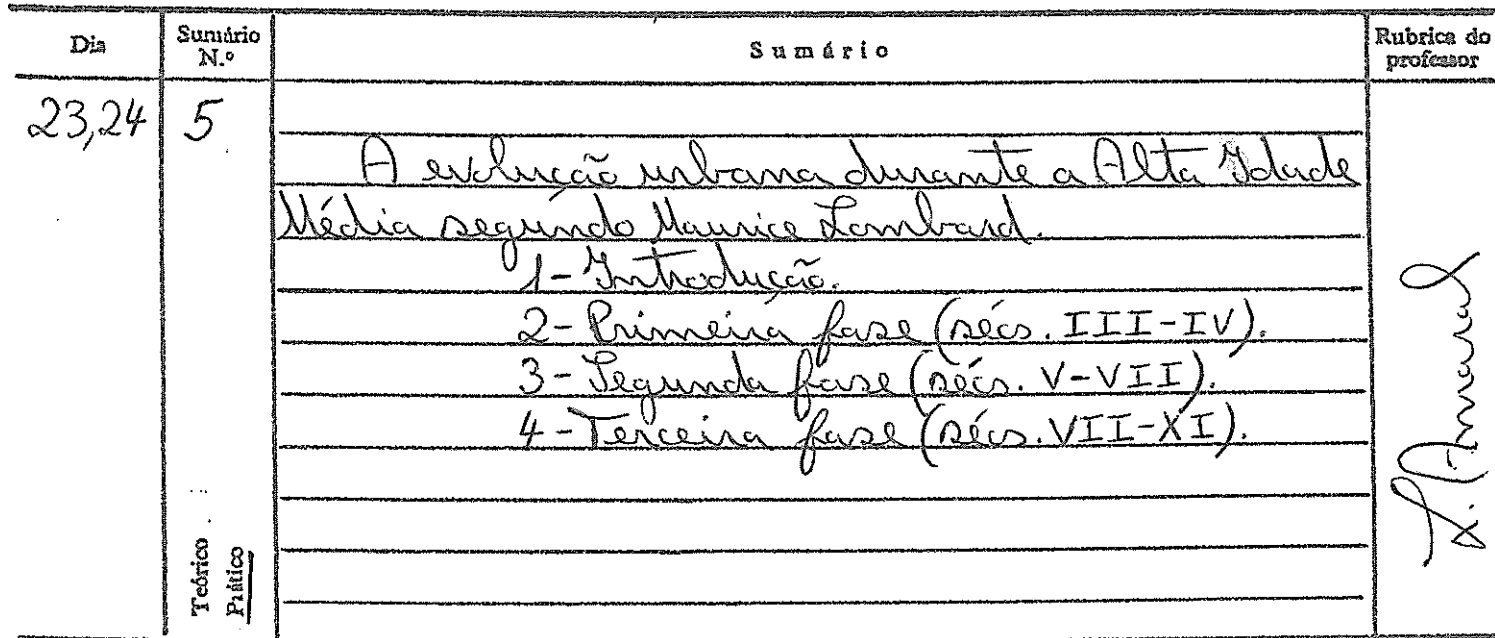 Dia
Sumário
N.º
Sumário
Rubrica do
professor
23,24
5
A evolução urbana durante a Alta Idade
Média segundo Maurice Lombard.
1- Introdução.
2- Primeira fase (sécs. III-IV).
3- Segunda fase (sécs. V-VII).
4- Terceira fase (sécs. VII-XI).
Teórico
Prático
L. Amaral